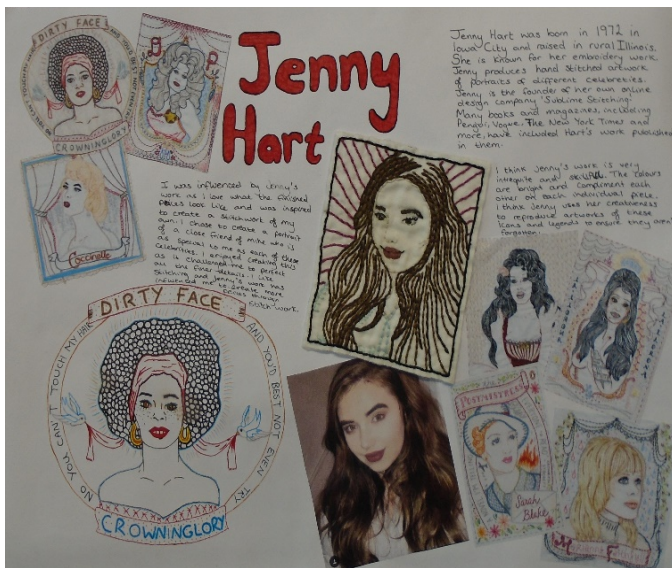 Jenny
Hart
Jenny Hart was born in 1972 in
Iowa City and raised in rural Illinois.
She is known for her embroidery work.
Jenny produces hand stitched artwork
of portraits of different celebreties.
Jenny is the founder of her own online
design company 'Sublime Stitching'.
Many books and magazines, including
Penguin, Vogue, The New York Times and
more, have included Hart's work published
in them.
I think Jenny's work is very
and skillfull. The colours
are bright and compliment each
other on each individual piece.
I think Jenny uses her createness
to reproduce artworks of these
icons and legends to ensure they aren't
forgotten.
I was influenced by Jenny's
work as I love what the finished
pieces look like and was inspired
to create a stitchwork of my
own. I chose to create a portrait
of a close friend of mine who is
as special to me as each of these
celebrities. I enjoyed creating this
as it challenged me to perfect
all the finer details. I like
stitching and Jenny's work has
influenced me to create more
pieces through
stitch work.
DIRTY FACE
CROWNINGLORY
Coccinelle
DIRTY FACE
NO YOU CAN'T TOUCH MY HAIR
AND YOU'D BEST NOT EVEN TRY
CROWNINGLORY
Sarah
Blake
Marianne Faithfull